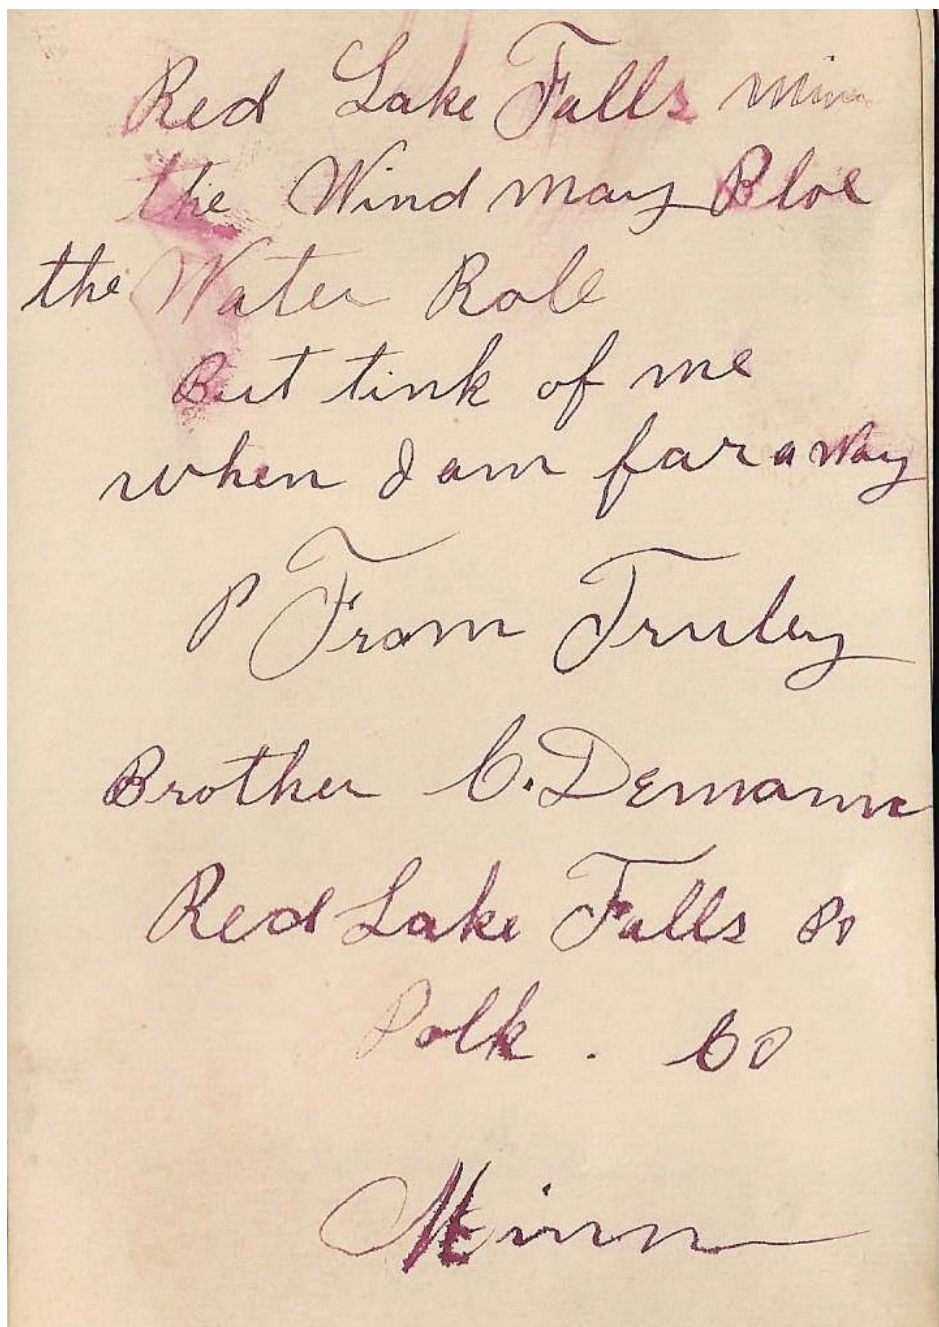 Red Lake Falls Minn
the Wind may Bloe
the Water Role
But tink of me
when I am far a Way
P From Truley
Brother C. Demann
Red Lake Falls Po
Polk . Co
Minn